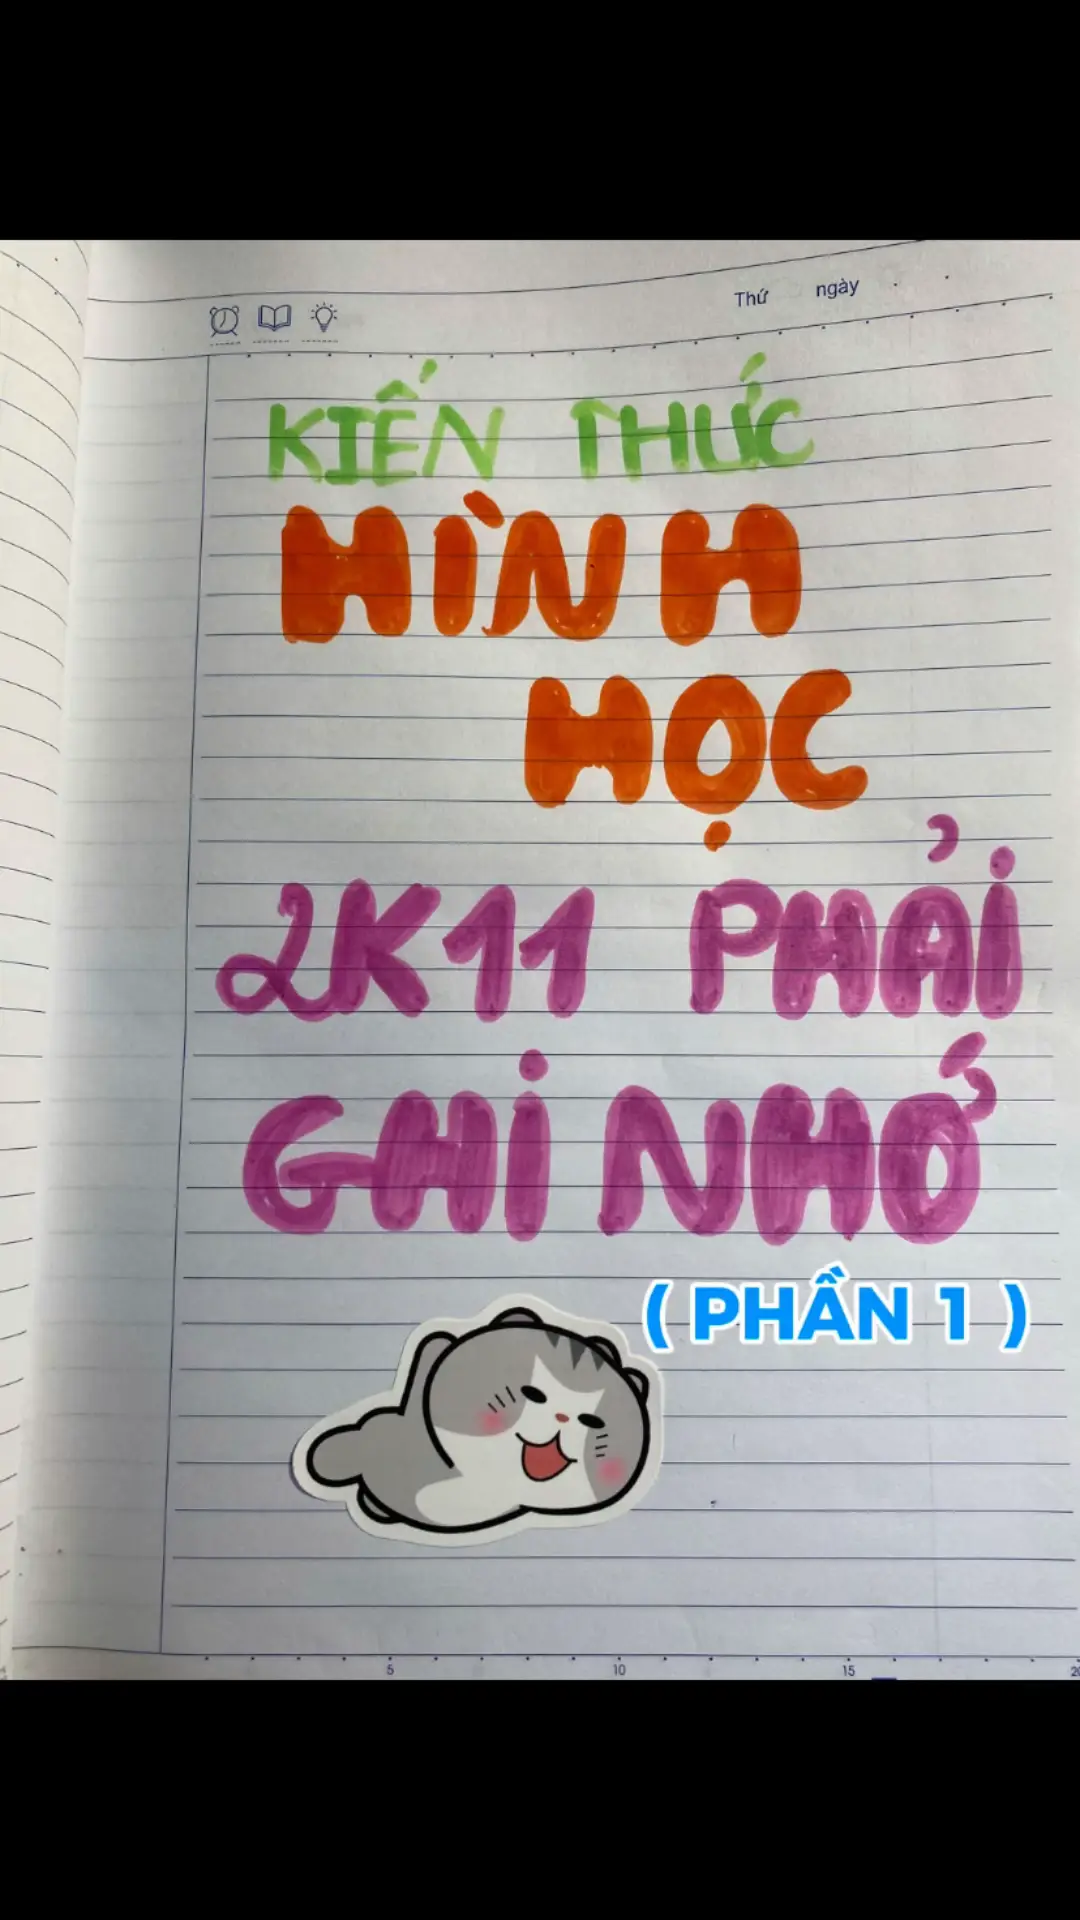 Thứ ngày
KIẾN THỨC
HÌNH
HỌC
2K11 PHẢI
GHI NHỚ
( PHẦN 1 )
5 10 15 20